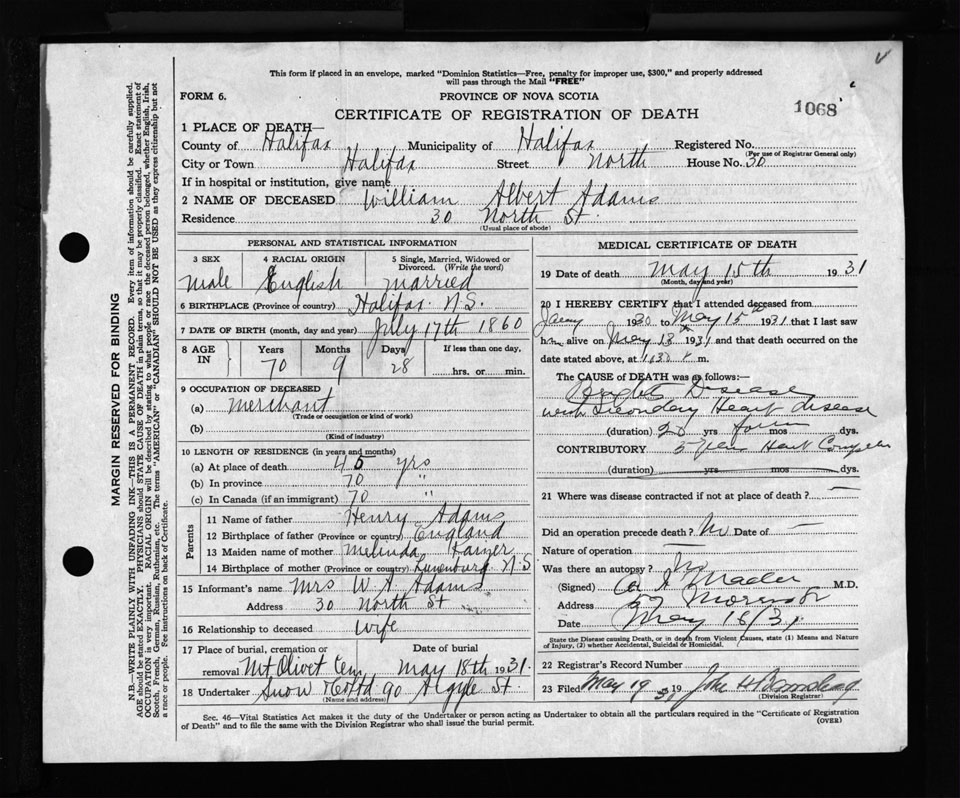 This form if placed in an envelope, marked "Dominion Statistics—Free, penalty for improper use, $300," and properly addressed
will pass through the Mail "FREE"
FORM 6.
PROVINCE OF NOVA SCOTIA
1068
CERTIFICATE OF REGISTRATION OF DEATH
1 PLACE OF DEATH—
County of Halifax Municipality of Halifax Registered No.
(For use of Registrar General only)
City or Town Halifax Street North House No. 30
If in hospital or institution, give name
2 NAME OF DECEASED William Albert Adams
Residence 30 North St.
(Usual place of abode)
PERSONAL AND STATISTICAL INFORMATION
3 SEX 4 RACIAL ORIGIN 5 Single, Married, Widowed or
Divorced. (Write the word)
Male English Married
6 BIRTHPLACE (Province or country) Halifax N.S.
7 DATE OF BIRTH (month, day and year) July 17th 1860
8 AGE IN Years Months Days If less than one day,
70 9 28 hrs. or min.
9 OCCUPATION OF DECEASED
(a) Merchant
(Trade or occupation or kind of work)
(b)
(Kind of industry)
10 LENGTH OF RESIDENCE (in years and months)
(a) At place of death 45 yrs
(b) In province 70 "
(c) In Canada (if an immigrant) 70 "
Parents
11 Name of father Henry Adams
12 Birthplace of father (Province or country) England
13 Maiden name of mother Melinda
14 Birthplace of mother (Province or country) Lunenburg N.S
15 Informant's name Mrs W. A. Adams
Address 30 North St
16 Relationship to deceased Wife
17 Place of burial, cremation or Date of burial
removal Mt Olivet Cem May 18th 1931.
18 Undertaker Snow & Co Ltd 90 Argyle St.
(Name and address)
MEDICAL CERTIFICATE OF DEATH
19 Date of death May 15th 1931
(Month, day and year)
20 I HEREBY CERTIFY that I attended deceased from
1930 to May 15th 1931 that I last saw
him alive on May 13 1931 and that death occurred on the
date stated above, at m.
The CAUSE OF DEATH was as follows:—
Brights Disease
with Secondary Heart disease
(duration) 20 yrs mos dys.
CONTRIBUTORY Heart
(duration) yrs mos dys.
21 Where was disease contracted if not at place of death? —
Did an operation precede death? No Date of —
Nature of operation —
Was there an autopsy? No
(Signed) M.D.
Address 57 Morris St
Date May 16/31
State the Disease causing Death, or in death from Violent Causes, state (1) Means and Nature
of Injury, (2) whether Accidental, Suicidal or Homicidal.
22 Registrar's Record Number
23 Filed May 19 1931 John H
(Division Registrar)
Sec. 46—Vital Statistics Act makes it the duty of the Undertaker or person acting as Undertaker to obtain all the particulars required in the "Certificate of Registration
of Death" and to file the same with the Division Registrar who shall issue the burial permit.
(OVER)
MARGIN RESERVED FOR BINDING
N.B.—WRITE PLAINLY WITH UNFADING INK—THIS IS A PERMANENT RECORD. Every item of information should be carefully supplied.
AGE should be stated EXACTLY. PHYSICIANS should STATE CAUSE OF DEATH in plain terms, so that it may be properly classified. Exact statement of
OCCUPATION is very important. RACIAL ORIGIN will be described by stating to what people or race the deceased person belonged, whether English, Irish,
Scotch, French, German, Russian, Ruthenian, etc. The terms "AMERICAN" or "CANADIAN" SHOULD NOT BE USED as they express citizenship but not
a race or people. See instructions on back of Certificate.